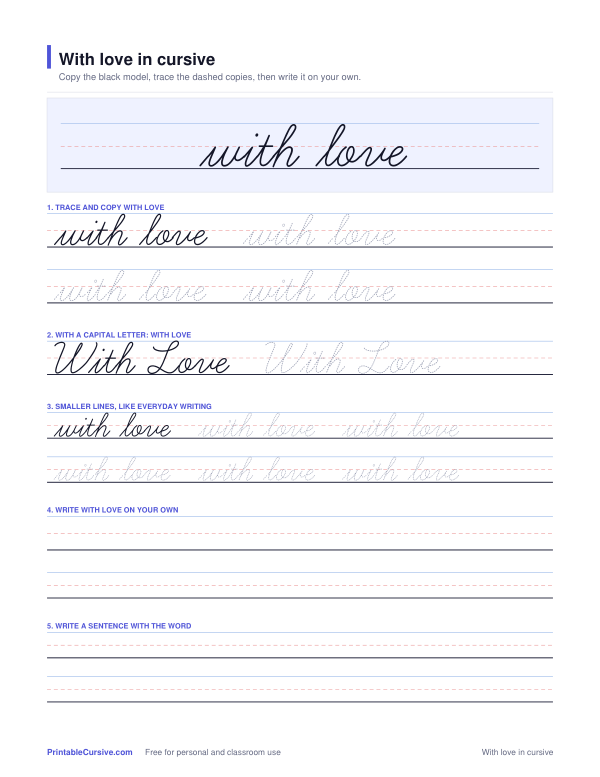 With love in cursive
Copy the black model, trace the dashed copies, then write it on your own.
with love
1. TRACE AND COPY WITH LOVE
with love with love
with love with love
2. WITH A CAPITAL LETTER: WITH LOVE
With Love With Love
3. SMALLER LINES, LIKE EVERYDAY WRITING
with love with love with love
with love with love with love
4. WRITE WITH LOVE ON YOUR OWN
5. WRITE A SENTENCE WITH THE WORD
PrintableCursive.com Free for personal and classroom use With love in cursive